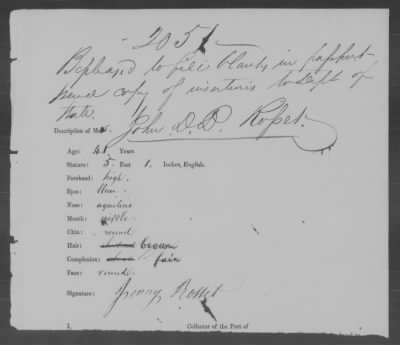 2051
Be pleased to fill blanks in passport
send copy of insertions to Dept of
State.
Description of Mrs. John D. D. Rosset.
Age: 41 Years
Stature: 5 Feet 1. Inches, English.
Forehead: high.
Eyes: blue.
Nose: aquiline
Mouth: middle
Chin: round
Hair: brown
Complexion: fair
Face: round.
Signature: Jenny Rosset
I, Collector of the Port of